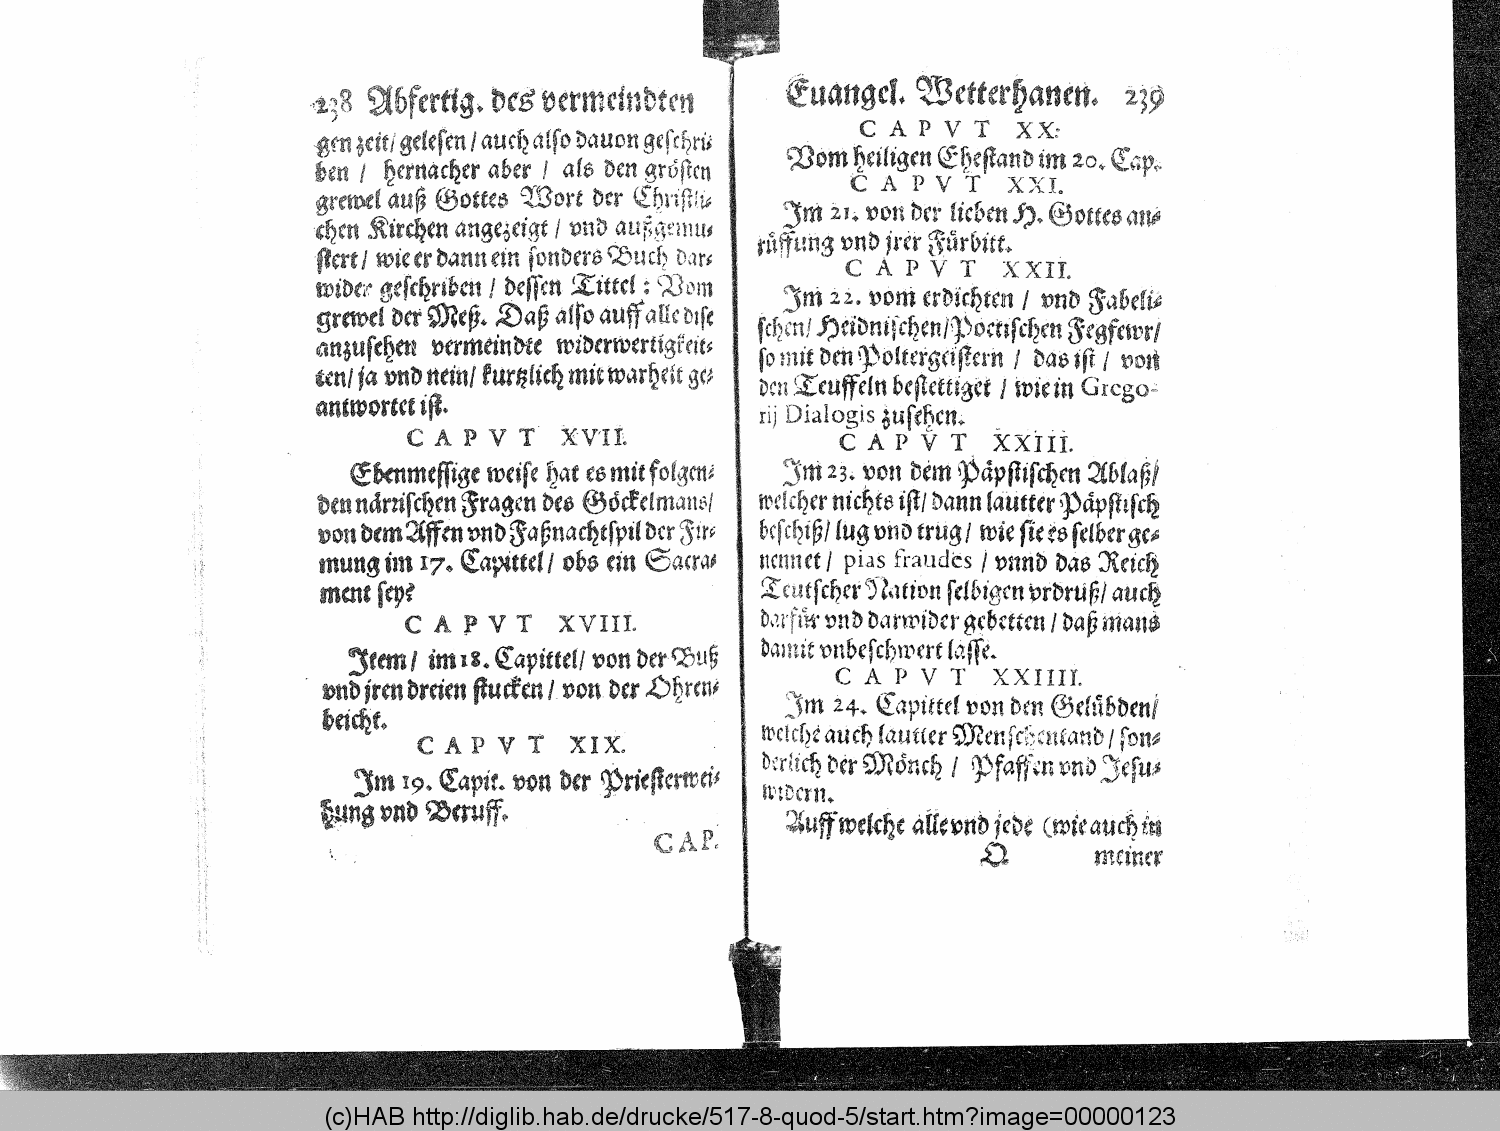 238 Abfertig. des vermeindten
gen zeit/ gelesen / auch also dauon geschri⸗
ben / hernacher aber / als den grösten
grewel auß Gottes Wort der Christli⸗
chen Kirchen angezeigt / vnd außgemu⸗
stert / wie er dann ein sonders Buch dar⸗
wider geschriben / dessen Tittel : Vom
grewel der Meß. Daß also auff alle dise
anzusehen vermeindte widerwertigkeit⸗
ten/ ja vnd nein/ kurtzlich mit warheit ge⸗
antwortet ist.
CAPVT XVII.
Ebenmessige weise hat es mit folgen⸗
den närrischen Fragen des Göckelmans/
von dem Affen vnd Faßnachtspil der Fir⸗
mung im 17. Capittel/ obs ein Sacra⸗
ment sey?
CAPVT XVIII.
Item/ im 18. Capittel/ von der Buß
vnd jren dreien stucken / von der Ohren⸗
beicht.
CAPVT XIX.
Im 19. Capit. von der Priesterwei⸗
hung vnd Beruff.
CAP.
Euangel. Wetterhanen. 239
CAPVT XX.
Vom heiligen Ehestand im 20. Cap.
CAPVT XXI.
Im 21. von der lieben H. Gottes an⸗
rüffung vnd jrer Fürbitt.
CAPVT XXII.
Im 22. vom erdichten / vnd Fabeli⸗
schen/ Heidnischen/ Poetischen Fegfewr/
so mit den Poltergeistern / das ist / von
den Teuffeln bestettiget / wie in Grego-
rij Dialogis zusehen.
CAPVT XXIII.
Im 23. von dem Päpstischen Ablaß/
welcher nichts ist/ dann lautter Päpstisch
beschiß/ lug vnd trug / wie sie es selber ge⸗
nennet / pias fraudes / vnnd das Reich
Teutscher Nation selbigen vrdruß/ auch
darfür vnd darwider gebetten / daß mans
damit vnbeschwert lasse.
CAPVT XXIIII.
Im 24. Capittel von den Gelübden/
welche auch lautter Menschentand / son⸗
derlich der Mönch / Pfaffen vnd Jesu⸗
widern.
Auff welche alle vnd jede (wie auch in
Q meiner
(c)HAB http://diglib.hab.de/drucke/517-8-quod-5/start.htm?image=00000123